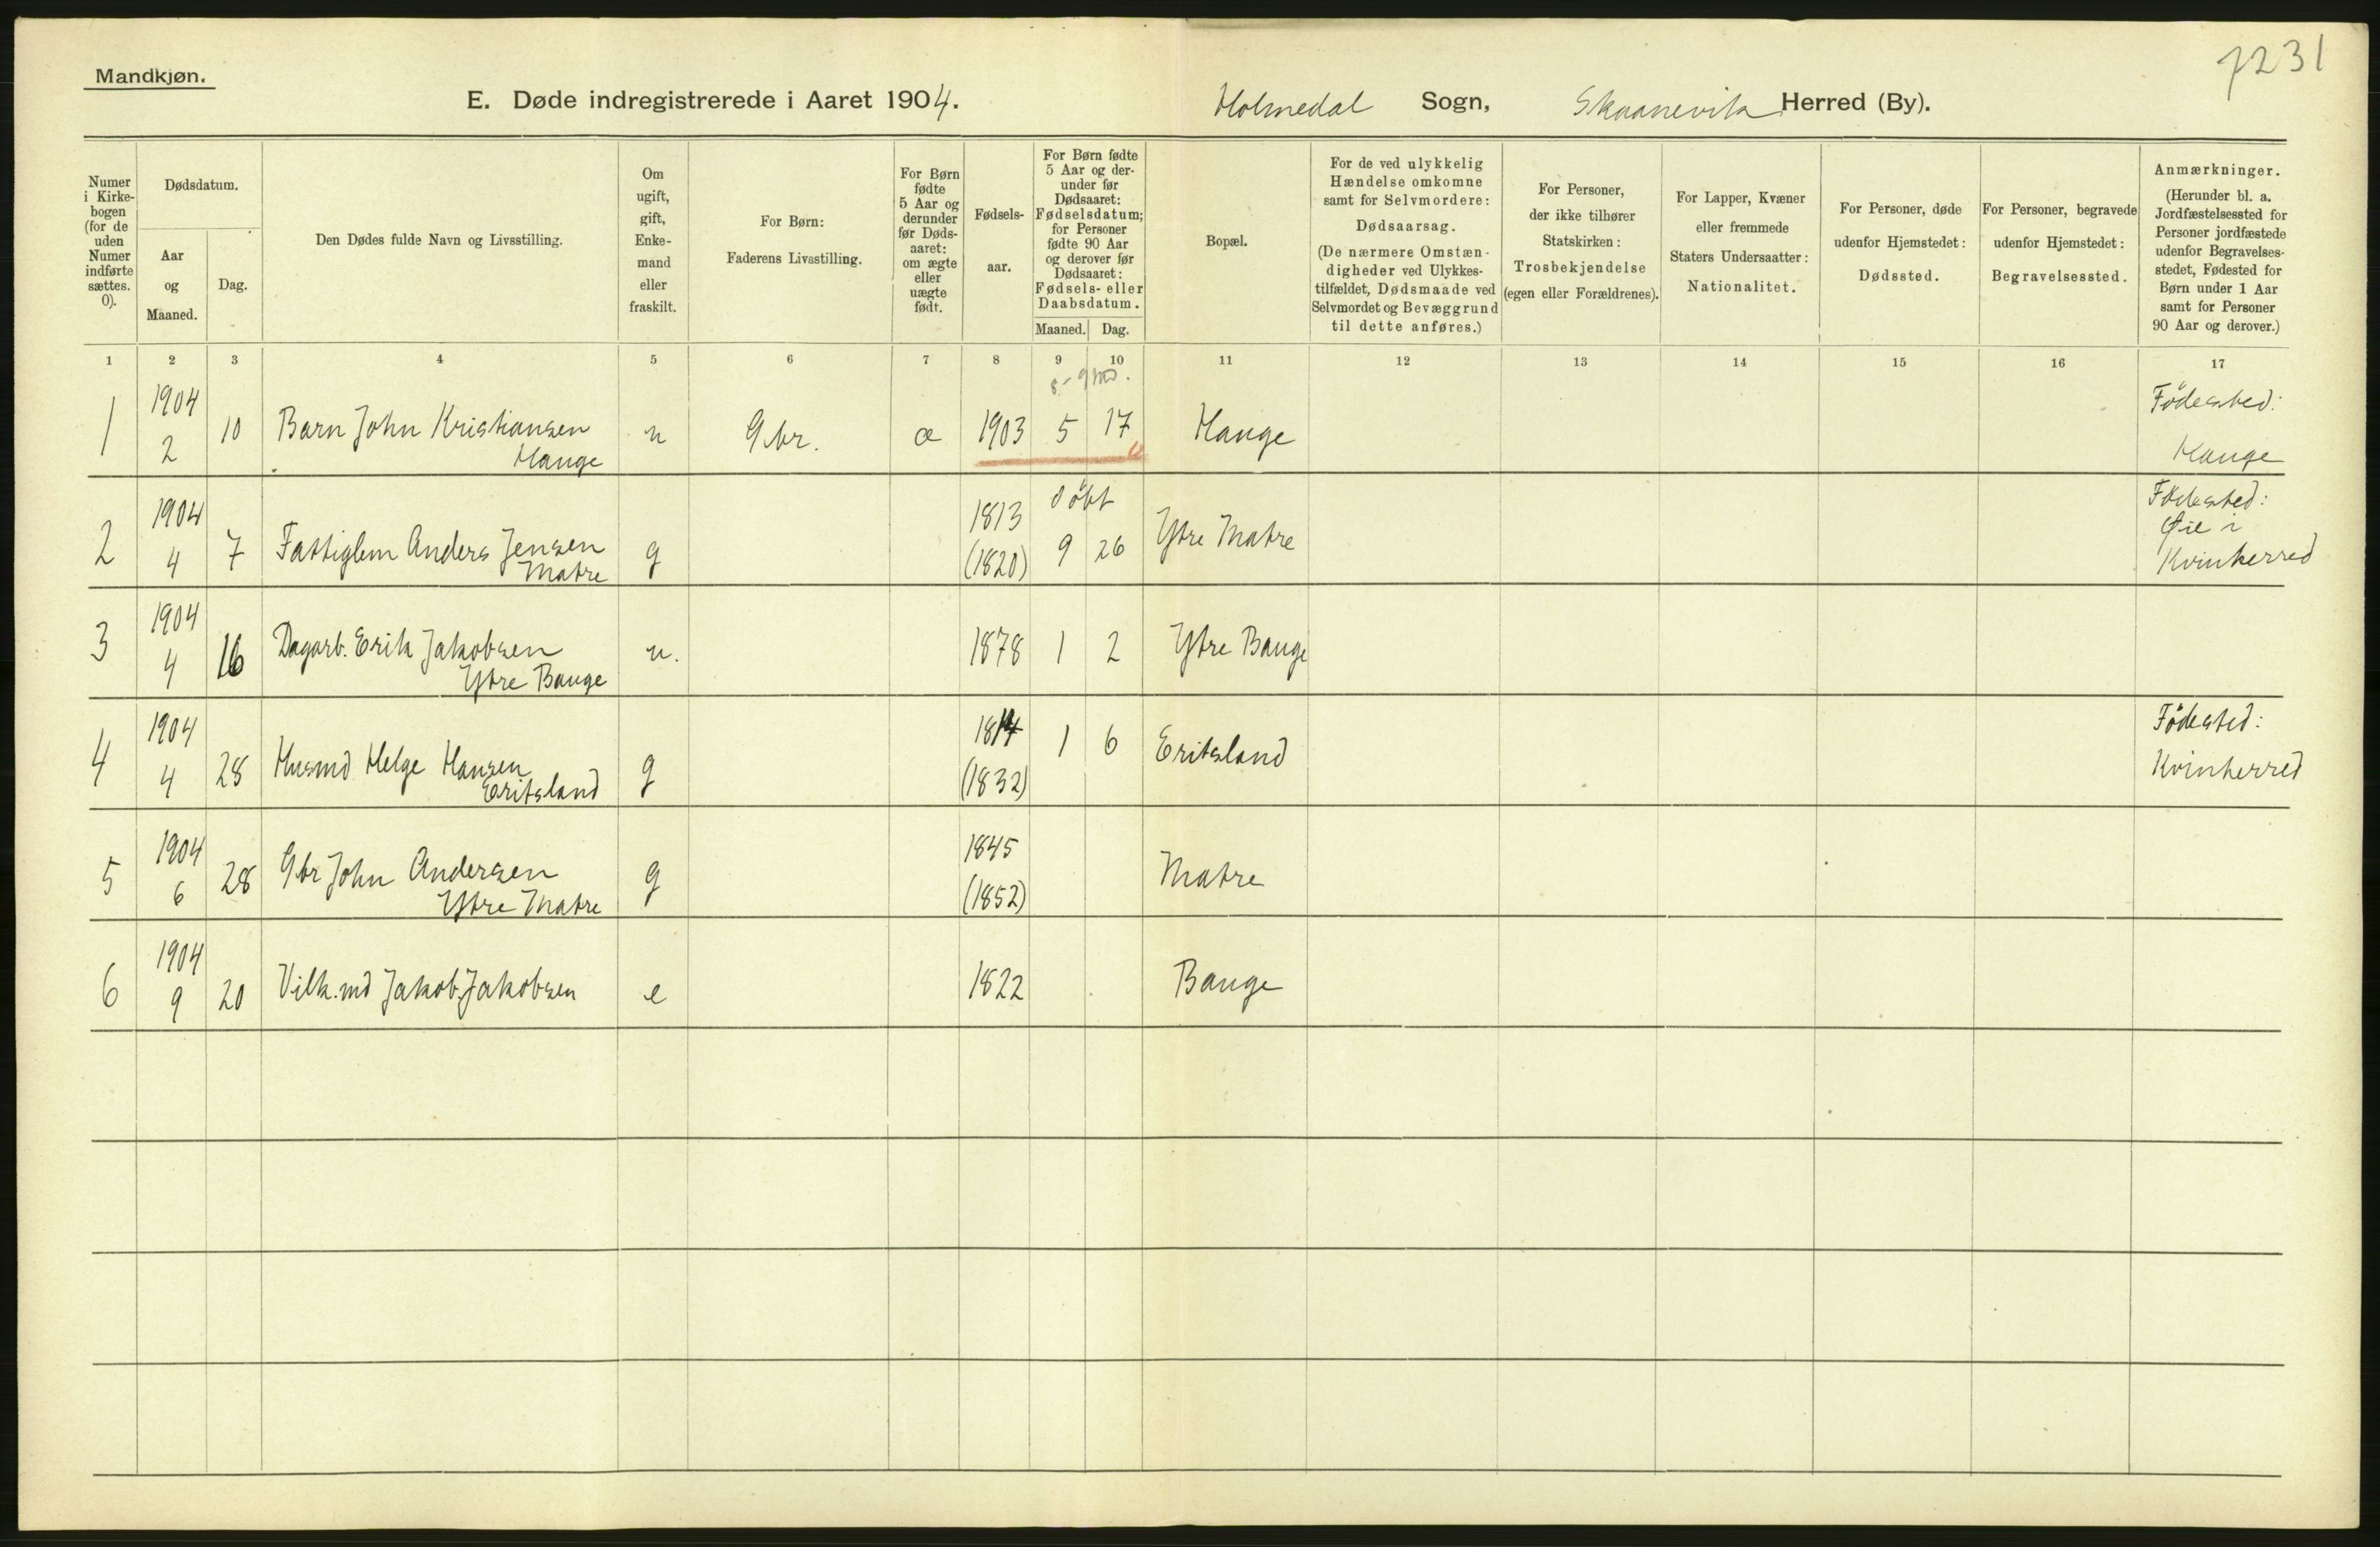 7231
Mandkjøn.
E. Døde indregistrerede i Aaret 1904. Holmedal Sogn, Skaanevik Herred (By).
Numer i Kirkebogen (for de uden Numer indførte sættes. 0).
Dødsdatum.
Aar og Maaned.
Dag.
Den Dødes fulde Navn og Livsstilling.
Om ugift, gift, Enkemand eller fraskilt.
For Børn: Faderens Livsstilling.
For Børn fødte 5 Aar og derunder før Dødsaaret: om ægte eller uægte født.
Fødselsaar.
For Børn fødte 5 Aar og derunder før Dødsaaret: Fødselsdatum; for Personer fødte 90 Aar og derover før Dødsaaret: Fødsels- eller Daabsdatum.
Maaned. Dag.
Bopæl.
For de ved ulykkelig Hændelse omkomne samt for Selvmordere: Dødsaarsag. (De nærmere Omstændigheder ved Ulykkestilfældet, Dødsmaade ved Selvmordet og Bevæggrund til dette anføres.)
For Personer, der ikke tilhører Statskirken: Trosbekjendelse (egen eller Forældrenes).
For Lapper, Kvæner eller fremmede Staters Undersaatter: Nationalitet.
For Personer, døde udenfor Hjemstedet: Dødssted.
For Personer, begravede udenfor Hjemstedet: Begravelsessted.
Anmærkninger. (Herunder bl. a. Jordfæstelsessted for Personer jordfæstede udenfor Begravelsesstedet, Fødested for Børn under 1 Aar samt for Personer 90 Aar og derover.)
1 2 3 4 5 6 7 8 9 10 11 12 13 14 15 16 17
8-9 md.
1 1904 2 10 Barn John Kristiansen Hauge u Gbr. æ 1903 5 17 Hauge Födested: Hauge
2 1904 4 7 Fattiglem Anders Jensen Matre g 1813 (1820) döbt 9 26 Ytre Matre Födested: Øie i Kvinherred
3 1904 4 16 Dagarb. Erik Jakobsen Ytre Bauge u. 1878 1 2 Ytre Bauge
4 1904 4 28 Husmd Helge Hansen Eritsland g 1814 (1832) 1 6 Eritsland Födested: Kvinherred
5 1904 6 28 Gbr John Andersen Ytre Matre g 1845 (1852) Matre
6 1904 9 20 Vilk.md Jakob Jakobsen e 1822 Bauge